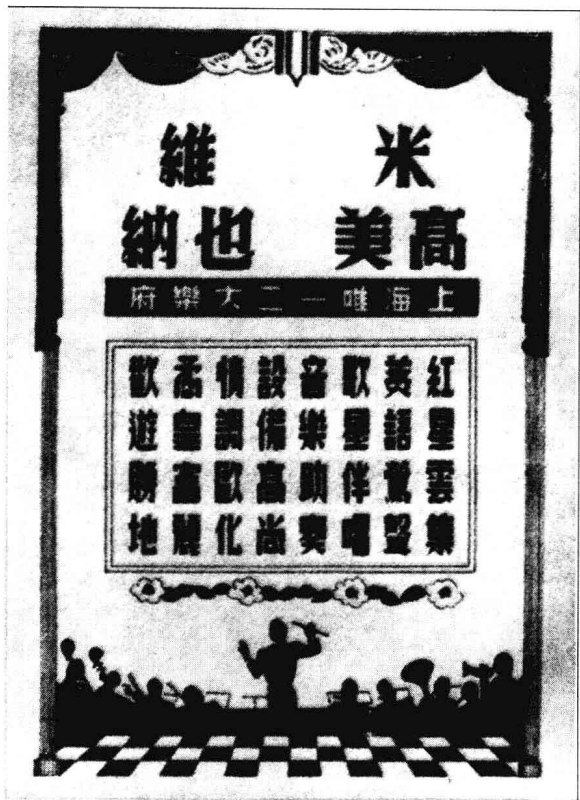 米高美
維也納
上海唯一二大樂府
紅星雲集
燕語鶯聲
歌星伴唱
音樂助奏
設備高尚
情調歐化
矞皇富麗
歡遊勝地